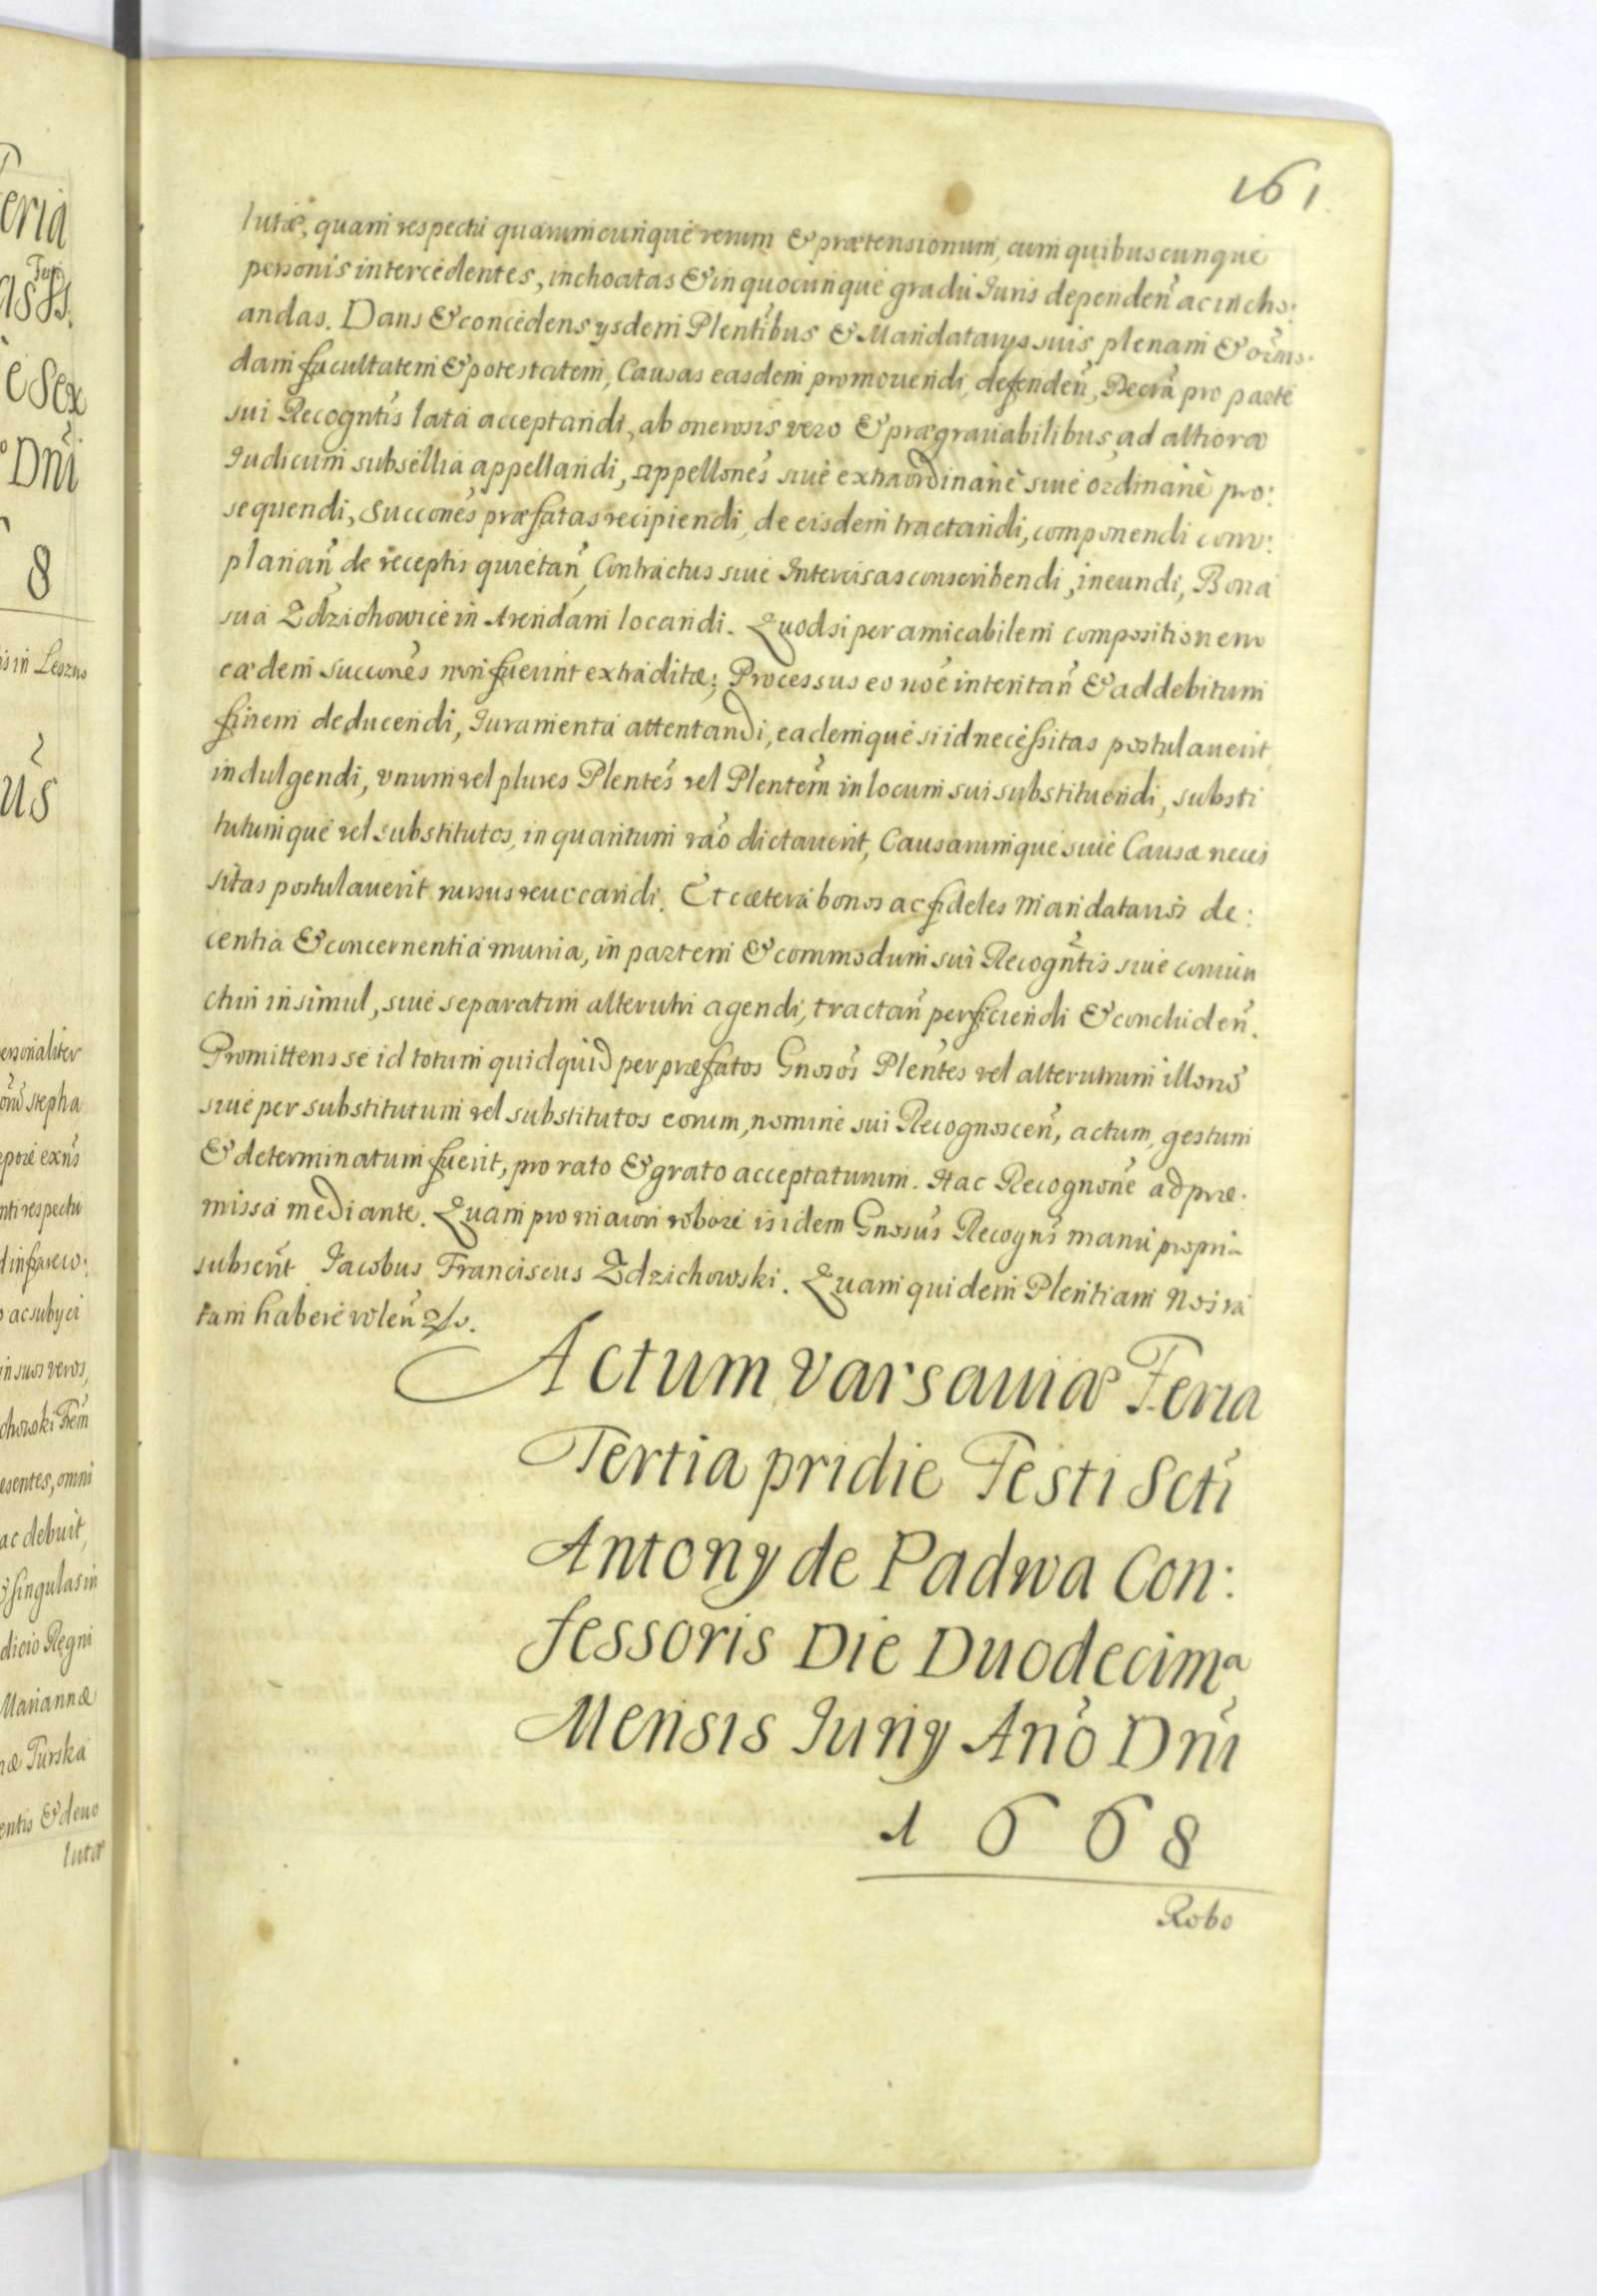 161
lutæ, quam respectu quarumcunque rerum & prætensionum, cum quibuscunque
personis intercedentes, inchoatas & in quocunque gradu Juris dependen̄ ac incho:
andas. Dans & concedens ysdem Plentibus & Mandatarys suis plenam & o̅m̅o:
dam facultatem & potestatem, Causas easdem promouendi, defenden̄, Decra pro parte
sui Recogntis lata acceptandi, ab onerosis vero & prægrauabilibus, ad altiora
Iudicum subsellia appellandi, Appellones siue extraordinariè siue ordinariè pro:
sequendi, Succones præfatas recipiendi, de eisdem tractandi, componendi com:
planan̄ de receptis quietan̄, Contractus siue Intercisas conscribendi, ineundi, Bona
sua Zdzichowice in Arendam locandi. Quodsi per amicabilem compositionem
eædem succones non fuerint extraditæ; Processus eo noe intentan̄ & ad debitum
finem deducendi, Iuramenta attentandi, eademque si id necessitas postulauerit
indulgendi, vnum vel plures Plentes vel Plentem in locum sui substituendi, substi
tutumque vel substitutos, in quantum rāo dictauerit, Causarumque siue Causæ neces
sitas postulauerit rursus reuocandi. Et cætera bonos ac fideles Mandatarios de:
centia & concernentia munia, in partem & commodum sui Recogntis siue coniun
ctim insimul, siue separatim alterutri agendi, tractan̄ perficiendi & concluden̄.
Promittens se id totum quidquid per præfatos Gnosos Plentes vel alterutrum illorū
siue per substitutum vel substitutos eorum, nomine sui Recognoscen̄, actum, gestum
& determinatum fuerit, pro rato & grato acceptaturum. Hac Recognone ad præ:
missa mediante. Quam pro maiori robore isidem Gnosus Recogns manu propria
subscrit Jacobus Franciscus Zdzichowski. Quam quidem Plentiam Nos ra
tam habere volen̄ &c.
Actum Varsauiæ Feria
Tertia pridie Festi Scti
Antony de Padwa Con:
fessoris Die Duodecima
Mensis Juny Ano Dni
1668
Robo